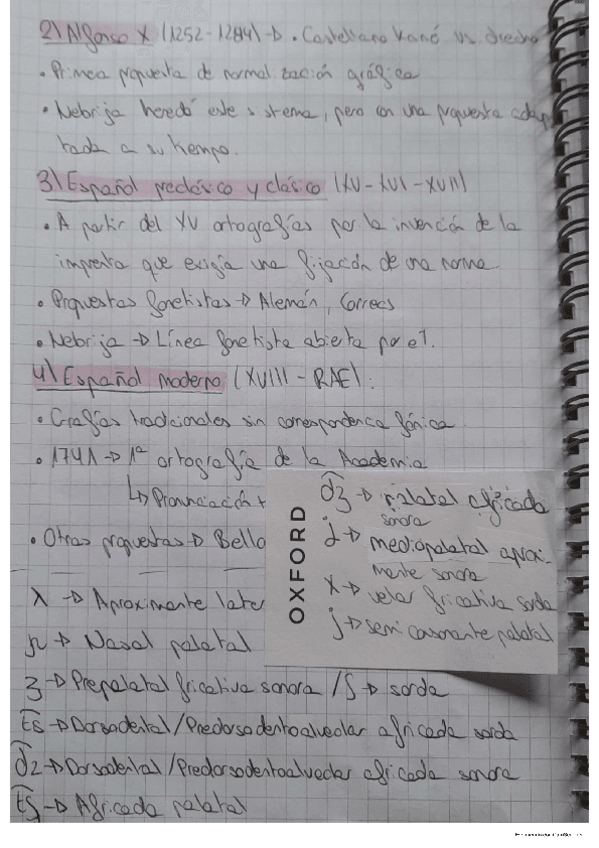 2) Alfonso X (1252-1284) → • Castellano vs.
• Primera propuesta de normalización gráfica
• Nebrija heredó este sistema, pero con una propuesta adap
tada a su tiempo.
3) Español preclásico y clásico (XV-XVI-XVII)
• A partir del XV ortografías por la invención de la
imprenta que exigía una fijación de una norma
• Propuestas fonetistas → Alemán, Correas
• Nebrija → Línea fonetista abierta por el.
4) Español moderno (XVIII - RAE):
• Grafías tradicionales sin correspondencia fónica
• 1741 → 1ª ortografía de la Academia
↳ Pronunciación +
• Otras propuestas → Bello
ʎ → Aproximante later
ɲ → Nasal palatal
ʒ → Prepalatal fricativa sonora / ʃ → sorda
t͡s → Dorsodental/Predorsodentoalveolar africada sorda
d͡z → Dorsodental/Predorsodentoalveolar africada sonora
t͡ʃ → Africada palatal
OXFORD
d͡ʒ → palatal africada
sonora
ʝ → mediopalatal aproxi-
mante sonora
x → velar fricativa sorda
j → semiconsonante palatal